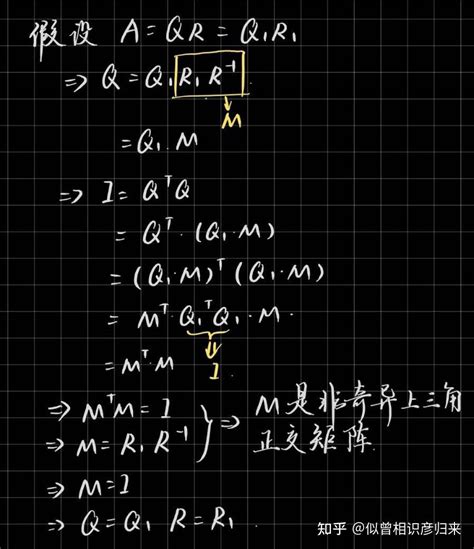 假设 A = QR = Q₁R₁
⇒ Q = Q₁ R₁ R⁻¹
M
= Q₁ M
⇒ I = QᵀQ
= Qᵀ · (Q₁ · M)
= (Q₁ · M)ᵀ (Q₁ · M)
= Mᵀ · Q₁ᵀ Q₁ · M ·
= Mᵀ · M
I
⇒ MᵀM = I
⇒ M = R₁ R⁻¹
⇒ M 是非奇异上三角
正交矩阵
⇒ M = I
⇒ Q = Q₁ R = R₁
知乎 @似曾相识彦归来